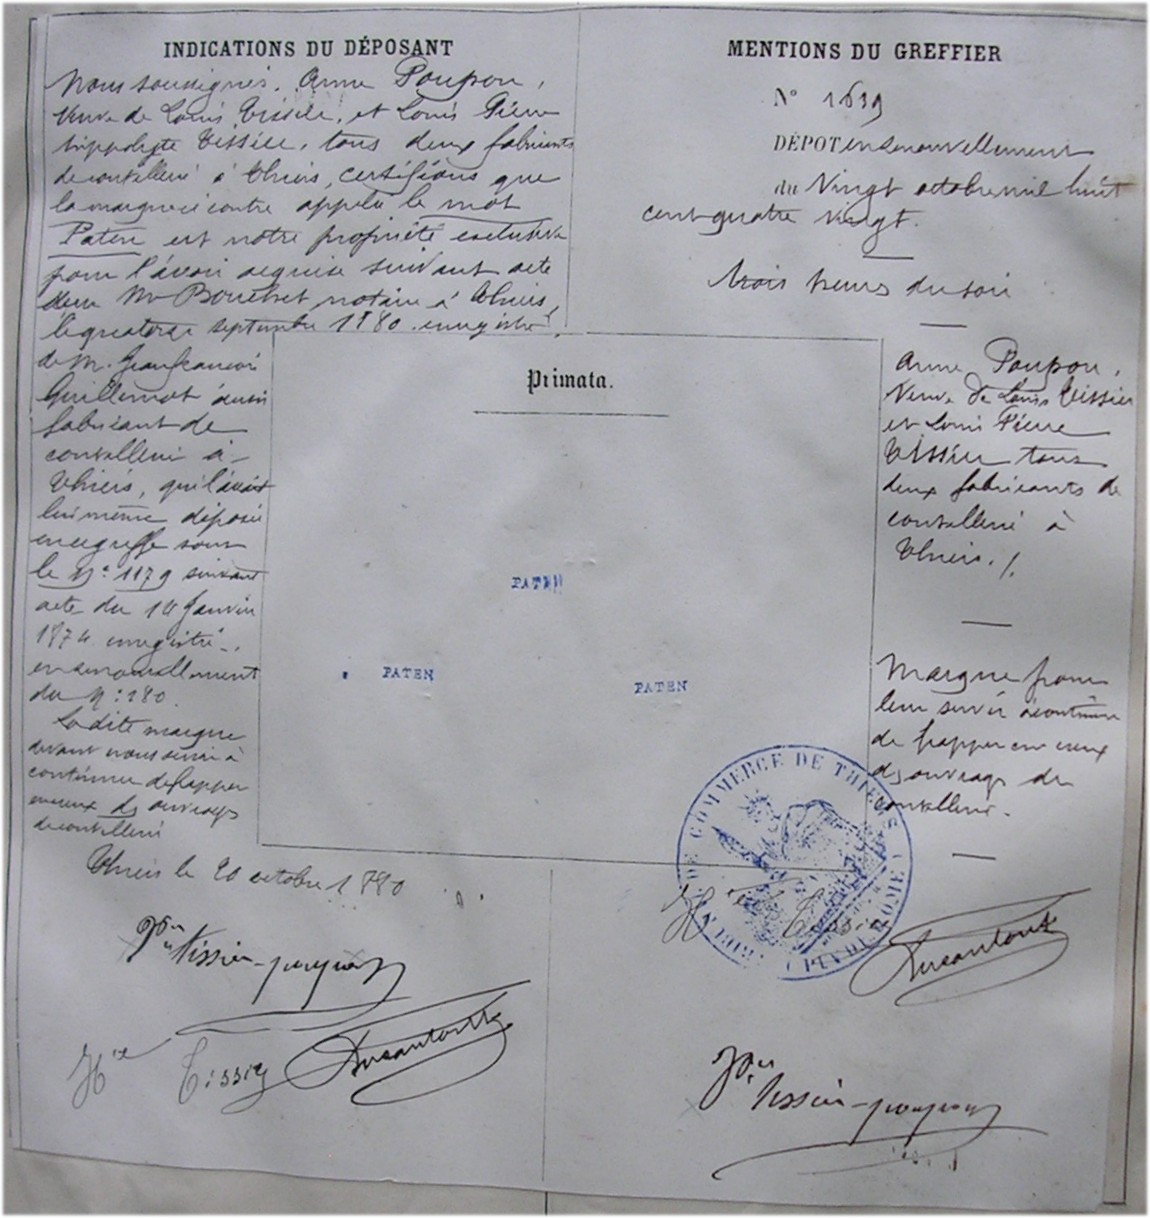 INDICATIONS DU DÉPOSANT
Nous soussignés, Anne Poupon,
Veuve de Louis Tissier, et Louis Pierre
hippolyte Tissier, tous deux fabricants
de coutellerie à Thiers, certifions que
la marque ci contre appelée le mot
Paten est notre propriété exclusive
pour l'avoir acquise suivant acte
Me notaire à Thiers,
le quatorze septembre 1880 enregistré
de M. Jean francois
Guillemot aussi
fabricant de
coutellerie à
Thiers, qui l'avait
lui même déposée
au greffe sous
le No 1179 suivant
acte du Janvier
1874 enregistré,
en renouvellement
du No 180.
La dite marque
devant nous servir à
continuer de frapper
en creux ds ouvrages
de coutellerie
Thiers le 20 octobre 1880
Vve Tissier-poupon
Hte Tissier
MENTIONS DU GREFFIER
No 1639
DÉPOT en renouvellement
du Vingt octobre mil huit
cent quatre vingt.
trois heures du soir
Anne Poupon,
Veuve de Louis Tissier
et Louis Pierre
Tissier tous
deux fabricants de
coutellerie à
Thiers./.
Marque pour
leur servir à continuer
de frapper en creux
ds ouvrages de
coutellerie.
Primata.
PATEN
PATEN
PATEN
DE COMMERCE DE THIERS
(PUY DE DOME)
Hte Tissier
Vve Tissier-poupon